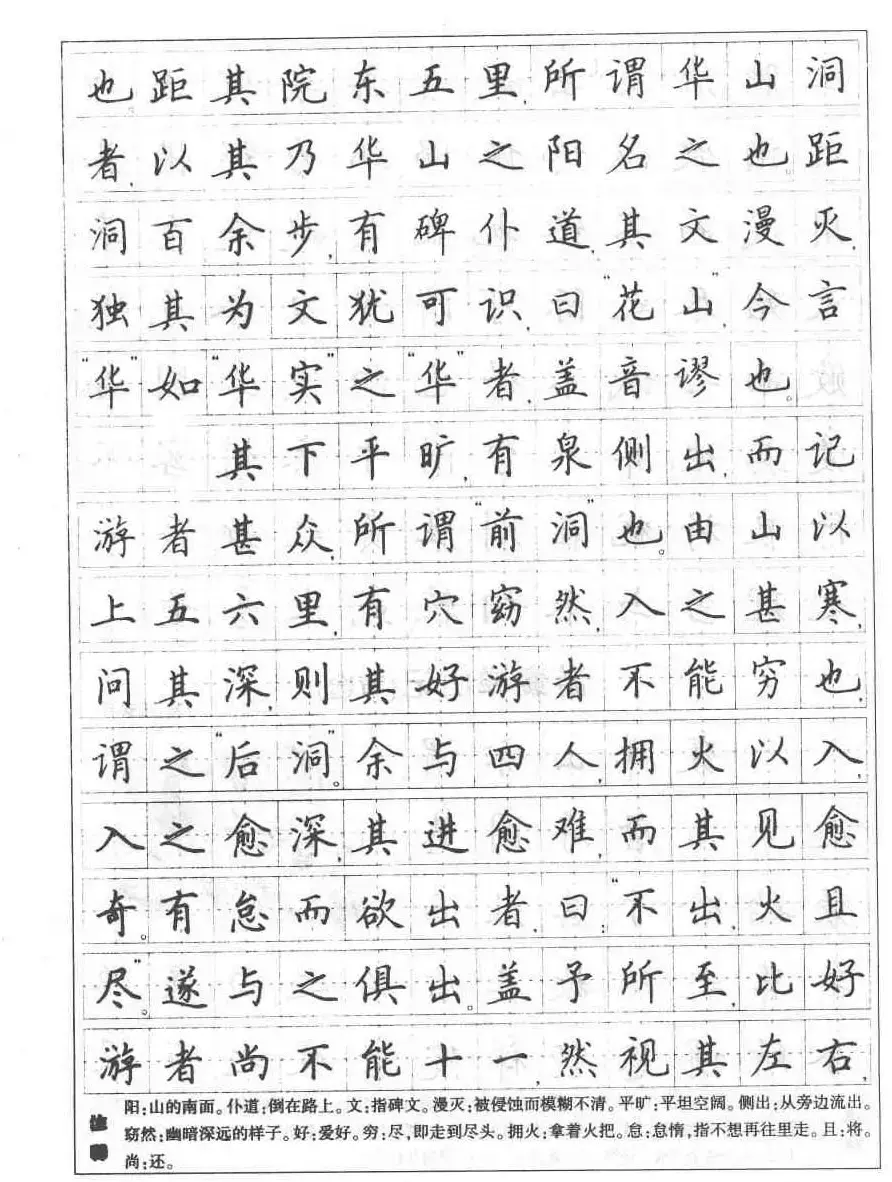 也。距其院东五里,所谓华山洞
者,以其乃华山之阳名之也。距
洞百余步,有碑仆道,其文漫灭,
独其为文犹可识,曰"花山"。今言
"华"如"华实"之"华"者,盖音谬也。
其下平旷,有泉侧出,而记
游者甚众,所谓"前洞"也。由山以
上五六里,有穴窈然,入之甚寒,
问其深,则其好游者不能穷也,
谓之"后洞"。余与四人,拥火以入,
入之愈深,其进愈难,而其见愈
奇。有怠而欲出者,曰:"不出,火且
尽。"遂与之俱出。盖予所至,比好
游者尚不能十一,然视其左右,
阳:山的南面。仆道:倒在路上。文:指碑文。漫灭:被侵蚀而模糊不清。平旷:平坦空阔。侧出:从旁边流出。
窈然:幽暗深远的样子。好:爱好。穷:尽,即走到尽头。拥火:拿着火把。怠:怠惰,指不想再往里走。且:将。
尚:还。